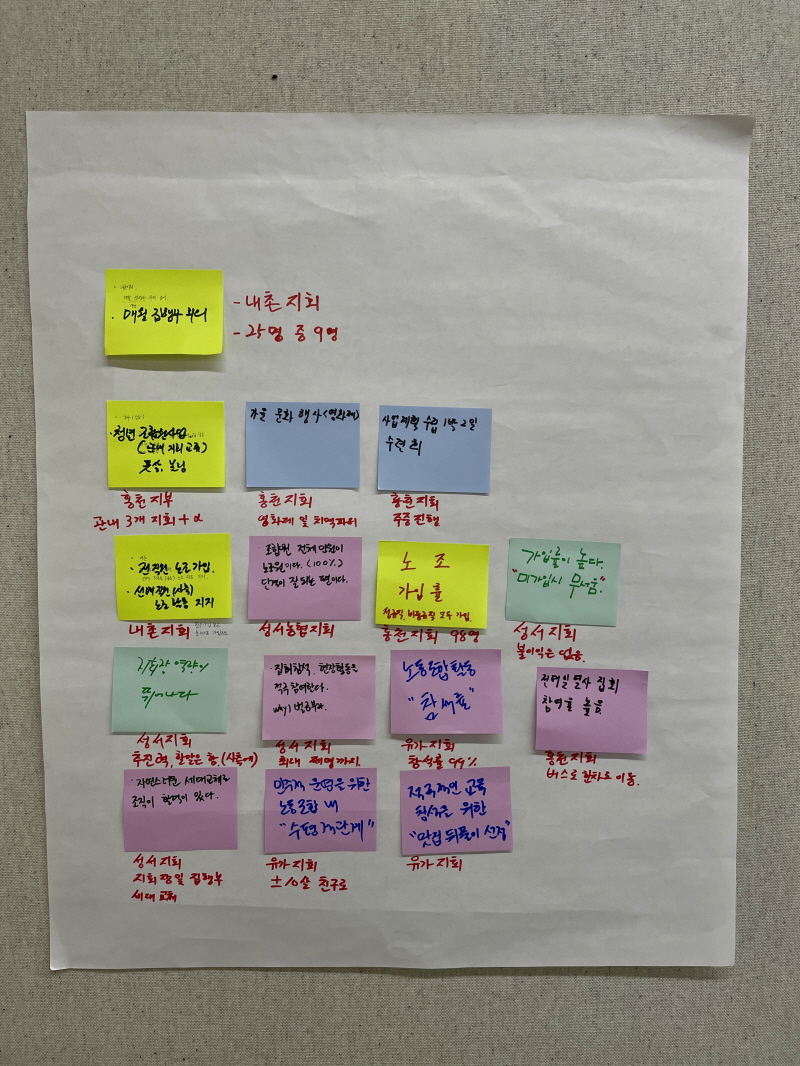 매월 집행부 회의
- 내촌 지회
- 21명 중 9명
청년 조합원사업
(관내 거리 교류)
풋살, 볼링
홍천지부
관내 3개 지회 + α
가을 문화 행사 (영화제)
홍천지회
영화제 및 치맥파티
사업계획 수립 1박 2일
수련회
홍천지회
주중 진행
· 전직원 노조가입.
· 선배직원 (사회)
노조 활동 지지
내촌지회
· 조합원 전체 인원이
노조원이다. (100%)
단결이 잘 되는 편이다.
성서농협지회
노조
가입률
정규직, 비정규직 모두 가입.
홍천지회 98명
가입률이 높다.
"미가입시 무서움."
성서지회
불이익은 없음.
지회장 역량이
뛰어나다
성서지회
추진력,
· 집회참석, 현장활동을
적극 참여한다.
why) 벌금부과.
성서지회
최대 제명까지.
노동조합 활동
"참석률"
유가지회
참석률 99%
전태일 열사 집회
참여율 높음
홍천지회
버스로 합차로 이동.
· 자연스러운 세대교체로
조직이 활력이 있다.
성서지회
지회장 및 집행부
세대교체
민주적 운영을 위한
노동조합 내
"수평적 관계"
유가지회
±10살 친구로
적극적인 교육
참석을 위한
"맛집 뒤풀이 선정"
유가지회